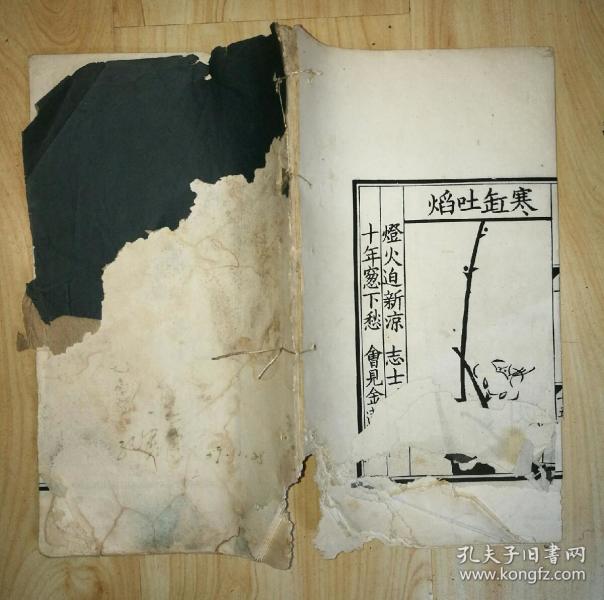 寒缸吐焰
燈火迫新凉 志士
十年窻下愁 會見金
孔夫子旧書网
www.kongfz.com